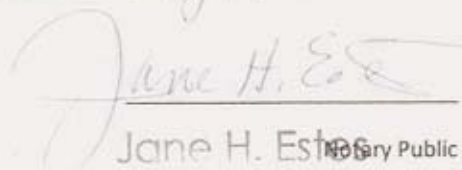 Jane H. Estes
Jane H. Estes Notary Public